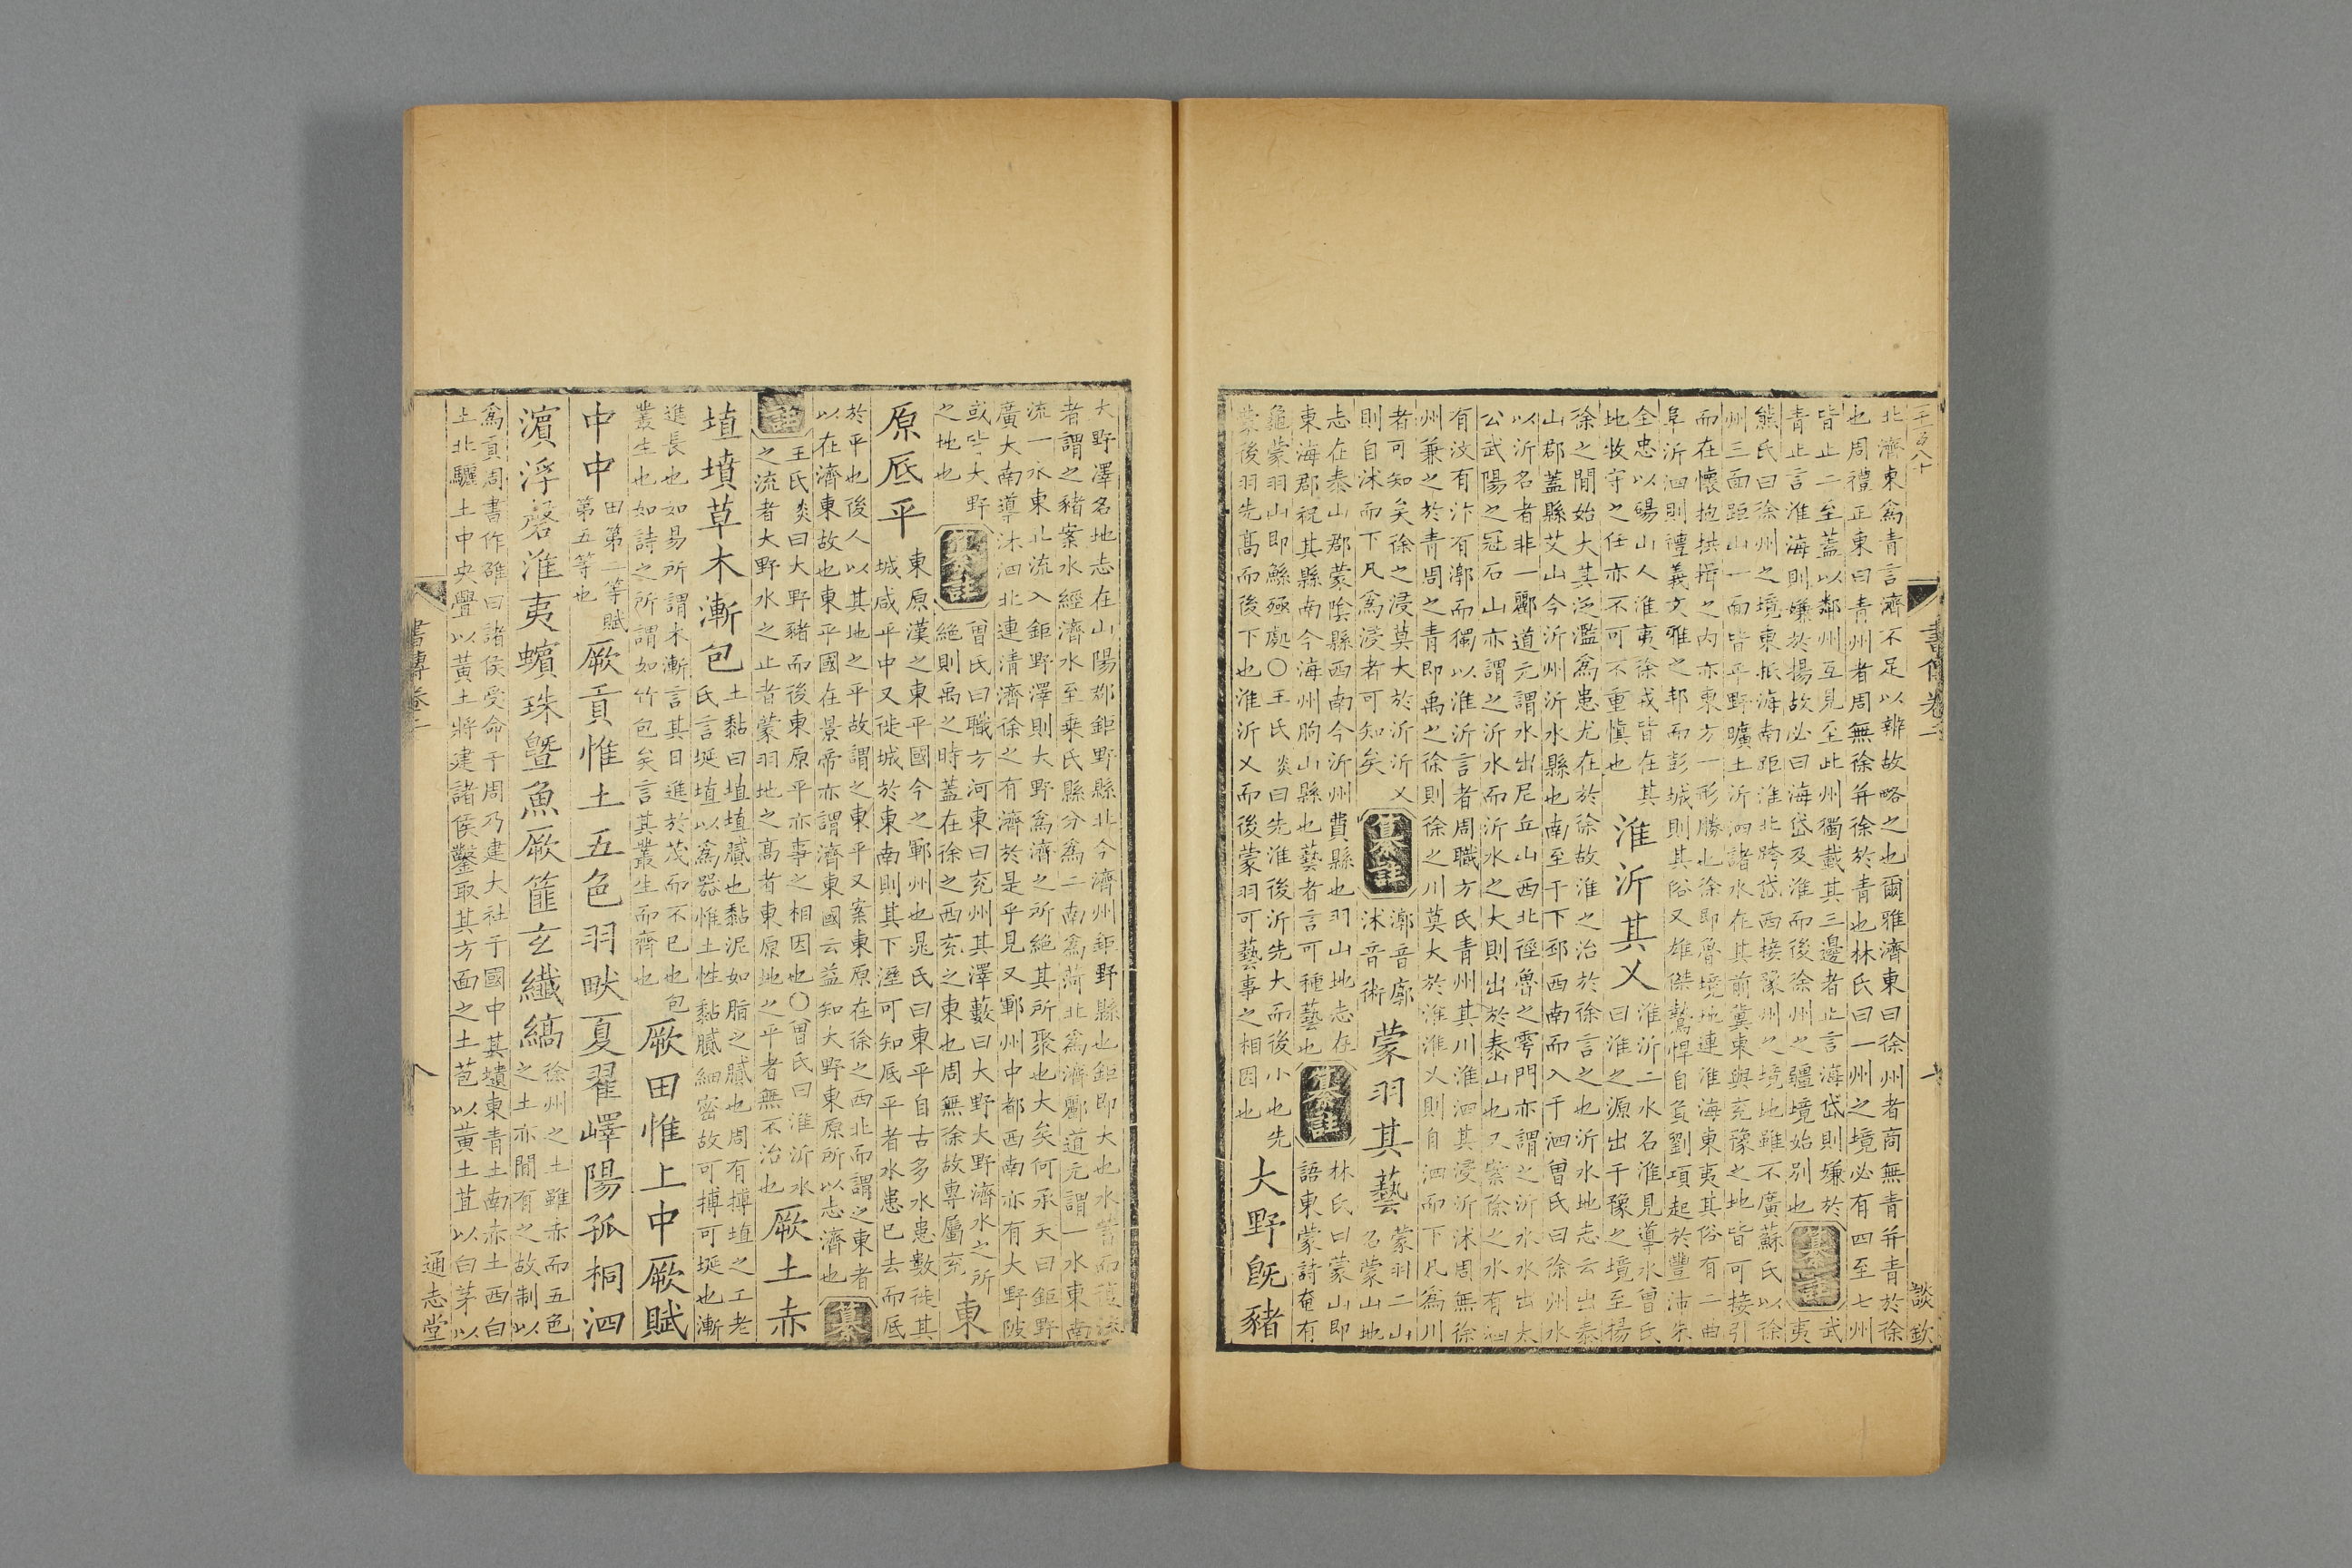 書傳卷二
談欽
北濟東爲青言濟不足以辨故略之也爾雅濟東曰徐州者商無青并青於徐
也周禮正東曰青州者周無徐并徐於青也林氏曰一州之境必有四至七州
皆止二至蓋以鄰州互見至此州獨載其三邊者止言海岱則嫌於
青止言淮海則嫌於揚故必曰海岱及淮而後徐州之疆境始別也
纂註
武
夷
熊氏曰徐州之境東抵海南距淮北跨岱西接豫州之境地雖不廣蘇氏以徐
州三面距山一面皆平野曠土沂泗諸水在其前冀東與兗豫之地皆可接引
而在懷抱拱揖之內亦東方一形勝也徐即魯境地連淮海東夷其俗有二曲
阜沂泗則禮義文雅之邦而彭城則其俗又雄傑鷙悍自負劉項起於豐沛朱
全忠以碭山人淮夷徐戎皆在其
地牧守之任亦不可不重慎也
淮沂其乂
淮沂二水名淮見導水曾氏
曰淮之源出于豫之境至揚
徐之間始大其泛濫爲患尤在於徐故淮之治於徐言之也沂水地志云出泰
山郡蓋縣艾山今沂州沂水縣也南至于下邳西南而入于泗曾氏曰徐州水
以沂名者非一酈道元謂水出尼丘山西北徑魯之雩門亦謂之沂水水出太
公武陽之冠石山亦謂之沂水而沂水之大則出於泰山也又案徐之水有泗
有汶有汴有漷而獨以淮沂言者周職方氏青州其川淮泗其浸沂沭周無徐
州兼之於青周之青即禹之徐則徐之川莫大於淮淮乂則自泗而下凡爲川
者可知矣徐之浸莫大於沂沂乂
則自沭而下凡爲浸者可知矣
纂註
漷音廓
沭音術
蒙羽其藝
蒙羽二山
名蒙山地
志在泰山郡蒙陰縣西南今沂州費縣也羽山地志在
東海郡祝其縣南今海州朐山縣也藝者言可種藝也
纂註
林氏曰蒙山即
語東蒙詩奄有
龜蒙羽山即鯀殛處〇王氏炎曰先淮後沂先大而後小也先
蒙後羽先高而後下也淮沂乂而後蒙羽可藝事之相因也
大野旣豬
大野澤名地志在山陽郡鉅野縣北今濟州鉅野縣也鉅即大也水蓄而復流
者謂之豬案水經濟水至乘氏縣分爲二南爲菏北爲濟酈道元謂一水東南
流一水東北流入鉅野澤則大野爲濟之所絕其所聚也大矣何承天曰鉅野
廣大南導洙泗北連清濟徐之有濟於是乎見又鄆州中都西南亦有大野陂
或皆大野
之地也
纂註
曾氏曰職方河東曰兗州其澤藪曰大野大野濟水之所
絕則禹之時蓋在徐之西兗之東也周無徐故專屬兗
東
原厎平
東原漢之東平國今之鄆州也晁氏曰東平自古多水患數徙其
城咸平中又徙城於東南則其下溼可知厎平者水患已去而厎
於平也後人以其地之平故謂之東平又案東原在徐之西北而謂之東者
以在濟東故也東平國在景帝亦謂濟東國云益知大野東原所以志濟也
纂
註
王氏炎曰大野豬而後東原平亦事之相因也〇曾氏曰淮沂水
之流者大野水之止者蒙羽地之高者東原地之平者無不治也
厥土赤
埴墳草木漸包
土黏曰埴埴膩也黏泥如脂之膩也周有摶埴之工老
氏言埏埴以爲器惟土性黏膩細密故可摶可埏也漸
進長也如易所謂木漸言其日進於茂而不已也包
叢生也如詩之所謂如竹包矣言其叢生而齊也
厥田惟上中厥賦
中中
田第二等賦
第五等也
厥貢惟土五色羽畎夏翟嶧陽孤桐泗
濱浮磬淮夷蠙珠曁魚厥篚玄纖縞
徐州之土雖赤而五色
之土亦間有之故制以
爲貢周書作雒曰諸侯受命于周乃建大社于國中其壝東青土南赤土西白
土北驪土中央舋以黃土將建諸侯鑿取其方面之土苞以黃土苴以白茅以
書傳卷二
八
通志堂